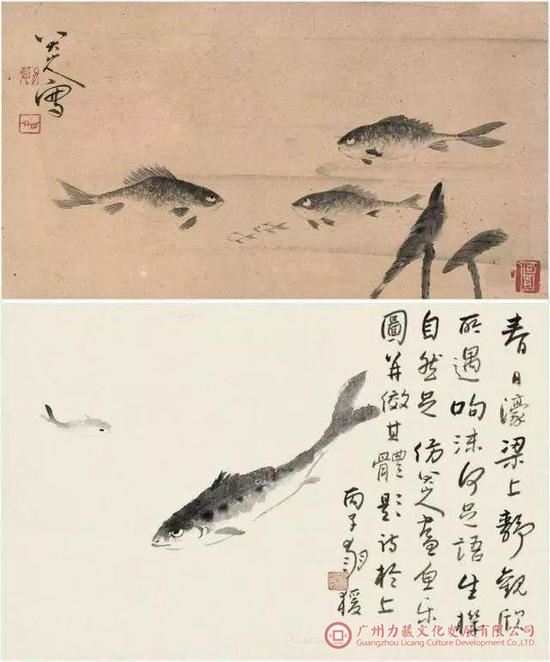 八大山人寫
春日濠梁上靜觀欣
所遇呴沫何足語生機
自然足仿八大山人畫魚樂
圖并倣其體題詩於上
丙子
广州力藏文化发展有限公司
Guangzhou Licang Culture Development Co.,Ltd.